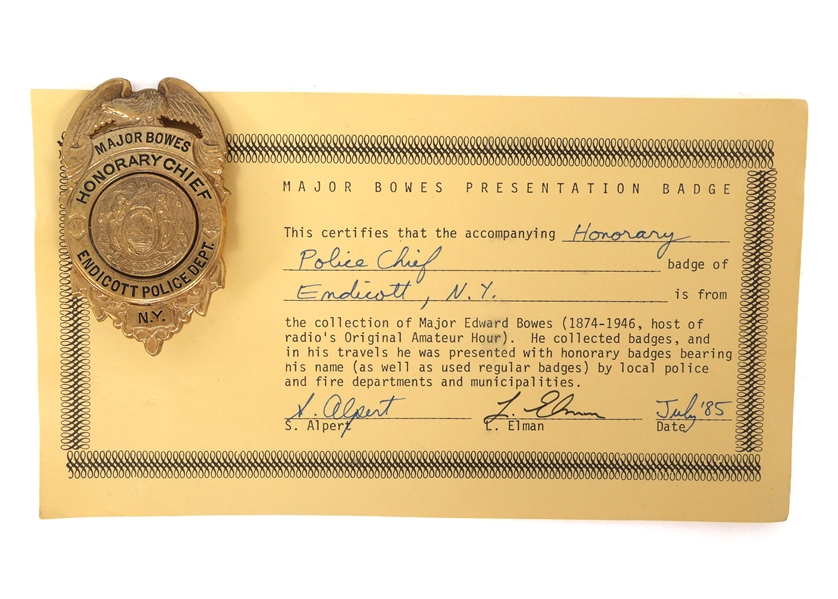 MAJOR BOWES
HONORARY CHIEF
ENDICOTT POLICE DEPT.
N.Y.
MAJOR BOWES PRESENTATION BADGE
This certifies that the accompanying Honorary
Police Chief badge of
Endicott, N.Y. is from
the collection of Major Edward Bowes (1874-1946, host of
radio's Original Amateur Hour). He collected badges, and
in his travels he was presented with honorary badges bearing
his name (as well as used regular badges) by local police
and fire departments and municipalities.
S. Alpert L. Elman July '85
S. Alpert L. Elman Date